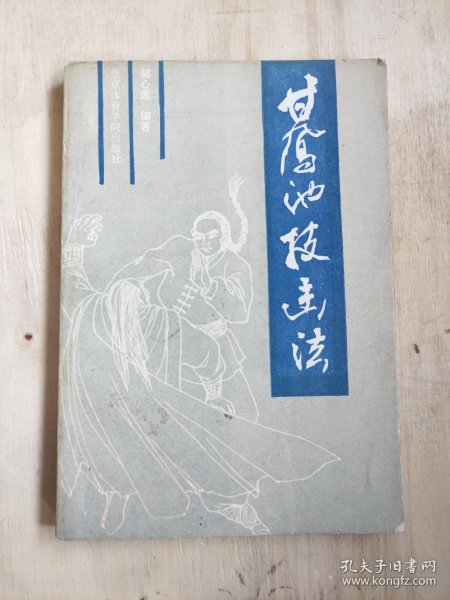 甘鳳池技击法
郝心莲 编著
北京体育学院出版社
孔夫子旧书网
www.kongfz.com